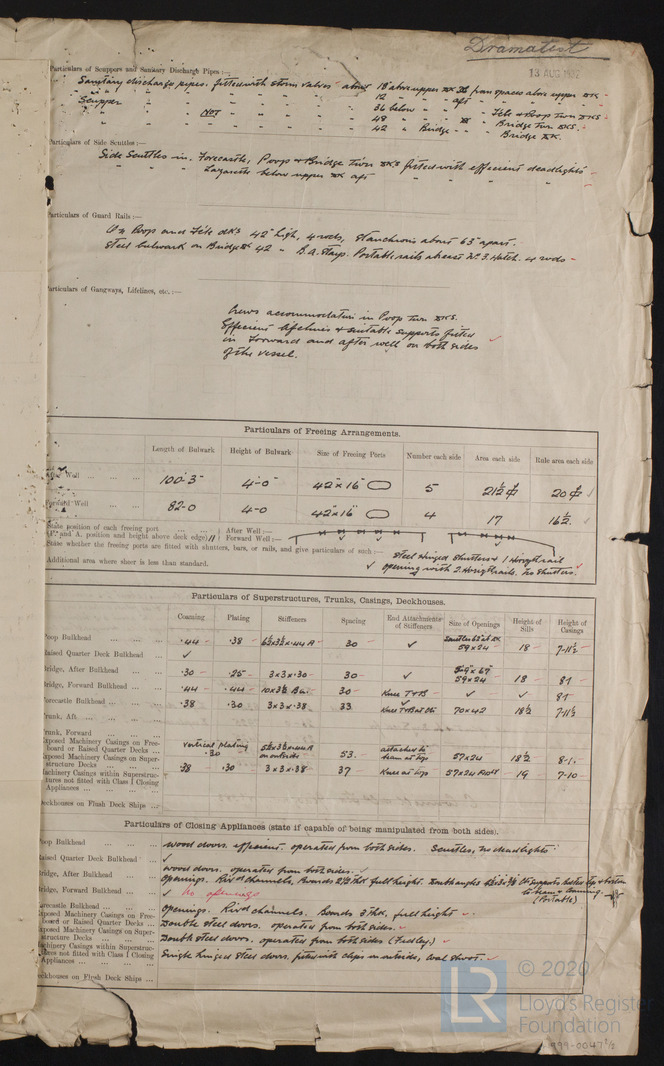 Dramatist
13 AUG 1932
Particulars of Scuppers and Sanitary Discharge Pipes :—
Sanitary discharge pipes. fitted with storm valves - about 18 above upper dk from spaces above upper dk -
12 aft
Scupper 36 below Fcle & Poop Twn dks
NOT 48 Bridge Twn dks.
42 Bridge Bridge dk.
Particulars of Side Scuttles :—
Side Scuttles in Forecastle, Poop & Bridge Twn dks fitted with efficient deadlights -
Lazarette below upper dk aft
Particulars of Guard Rails :—
On Poop and Fcle dks 42" high, 4 rods, stanchions about 63" apart.
Steel bulwark on Bridge dk 42 - B.A. Stays. Portable rails abreast No. 3 Hatch. 4 rods -
Particulars of Gangways, Lifelines, etc. :—
Crews accommodation in Poop Twn dks.
Efficient lifelines & suitable supports fitted
in Forward and after well on both sides
of the vessel.
Particulars of Freeing Arrangements.
Length of Bulwark Height of Bulwark Size of Freeing Ports Number each side Area each side Rule area each side
After Well 100'-3" 4'-0" 42" x 16" 5 21½ 20
Forward Well 82-0 4-0 42" x 16" 4 17 16½
State position of each freeing port After Well :—
(F. and A. position and height above deck edge) Forward Well :—
State whether the freeing ports are fitted with shutters, bars, or rails, and give particulars of such :—
Steel Hinged Shutters & 1 Horizl rail
Additional area where sheer is less than standard. opening with 2 Horizl rails. No shutters.
Particulars of Superstructures, Trunks, Casings, Deckhouses.
Coaming Plating Stiffeners Spacing End Attachments of Stiffeners Size of Openings Height of Sills Height of Casings
Poop Bulkhead .44 .38 6½x3½x.44 A 30 ✓ 59x24 18 7-11½
Raised Quarter Deck Bulkhead ✓
Bridge, After Bulkhead .30 .25 3x3x.30 30 ✓ 59x24 18 8-1
Bridge, Forward Bulkhead .44 .44 10x3½ B.A. 30 Knee T&B ✓ ✓ 8-1
Forecastle Bulkhead .38 .30 3x3x.38 33 70x42 18½ 7-11½
Trunk, Aft
Trunk, Forward
Exposed Machinery Casings on Free-
board or Raised Quarter Decks vertical plating .30 on outside 53 attached to beam at top 57x24 18½ 8-1
Exposed Machinery Casings on Super-
structure Decks .38 .30 3x3x.38 37 Knee at top 57x24 19 7-10
Machinery Casings within Superstruc-
tures not fitted with Class I Closing
Appliances
Deckhouses on Flush Deck Ships
Particulars of Closing Appliances (state if capable of being manipulated from both sides).
Poop Bulkhead Wood doors. efficient. operated from both sides. Scuttles, no deadlights
Raised Quarter Deck Bulkhead ✓
Bridge, After Bulkhead Wood doors. operated from both sides.
Openings. Rivd channels, Boards 2½ thk full height. Double angles supports top & bottom
to beam & Coaming
(Portable)
Bridge, Forward Bulkhead ✓ No openings
Forecastle Bulkhead Openings. Rivd channels, Boards 3 thk, full height
Exposed Machinery Casings on Free-
board or Raised Quarter Decks Double steel doors. operated from both sides.
Exposed Machinery Casings on Super-
structure Decks Double steel doors. operated from both sides (Fiddley.)
Machinery Casings within Superstruc-
tures not fitted with Class I Closing
Appliances Single hinged steel doors, fitted with clips on outside, coal shoot.
Deckhouses on Flush Deck Ships
LR
© 2020
Lloyd's Register
Foundation